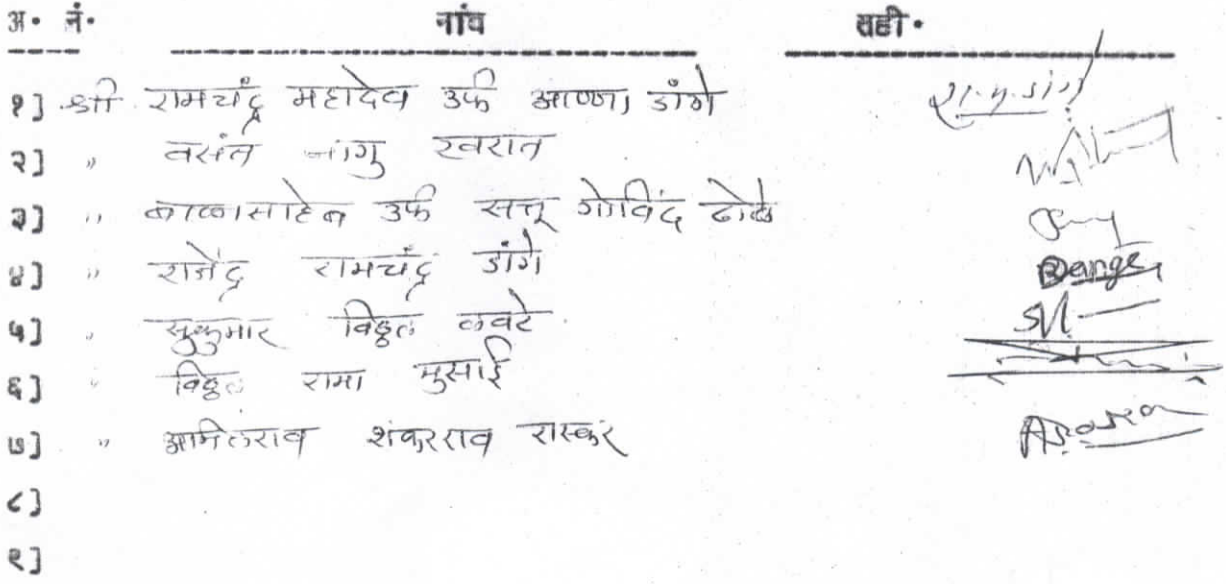 अ. नं. नांव सही.
१] श्री रामचंद्र महादेव उर्फ आण्णा डांगे रा.म.डांगे
२] " वसंत नागु खरात
३] " बाळासाहेब उर्फ सत्तू गोविंद ढोले
४] " राजेंद्र रामचंद्र डांगे Dange
५] " सुकुमार विठ्ठल लवटे
६] " विठ्ठल रामा मुसाई
७] " शंकरराव रास्कर
८]
९]